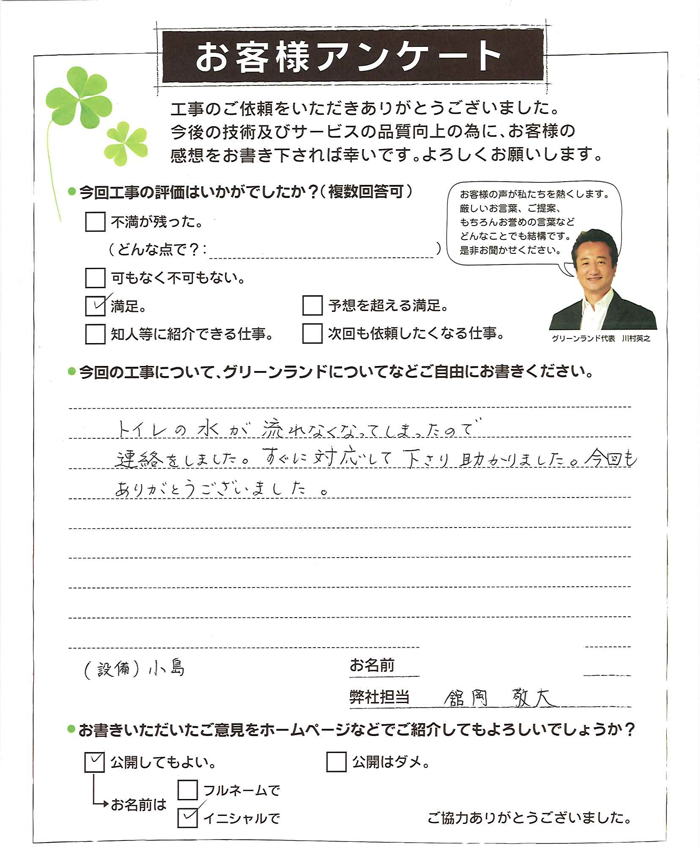 お客様アンケート
工事のご依頼をいただきありがとうございました。
今後の技術及びサービスの品質向上の為に、お客様の
感想をお書き下されば幸いです。よろしくお願いします。
今回工事の評価はいかがでしたか？（複数回答可）
不満が残った。
（どんな点で？：）
可もなく不可もない。
満足。
予想を超える満足。
知人等に紹介できる仕事。
次回も依頼したくなる仕事。
お客様の声が私たちを熱くします。
厳しいお言葉、ご提案、
もちろんお誉めの言葉など
どんなことでも結構です。
是非お聞かせください。
グリーンランド代表 川村英之
今回の工事について、グリーンランドについてなどご自由にお書きください。
トイレの水が流れなくなってしまったので
連絡をしました。すぐに対応して下さり助かりました。今回も
ありがとうございました。
（設備）小島
お名前
弊社担当 舘岡 敬大
お書きいただいたご意見をホームページなどでご紹介してもよろしいでしょうか？
公開してもよい。
公開はダメ。
お名前は
フルネームで
イニシャルで
ご協力ありがとうございました。